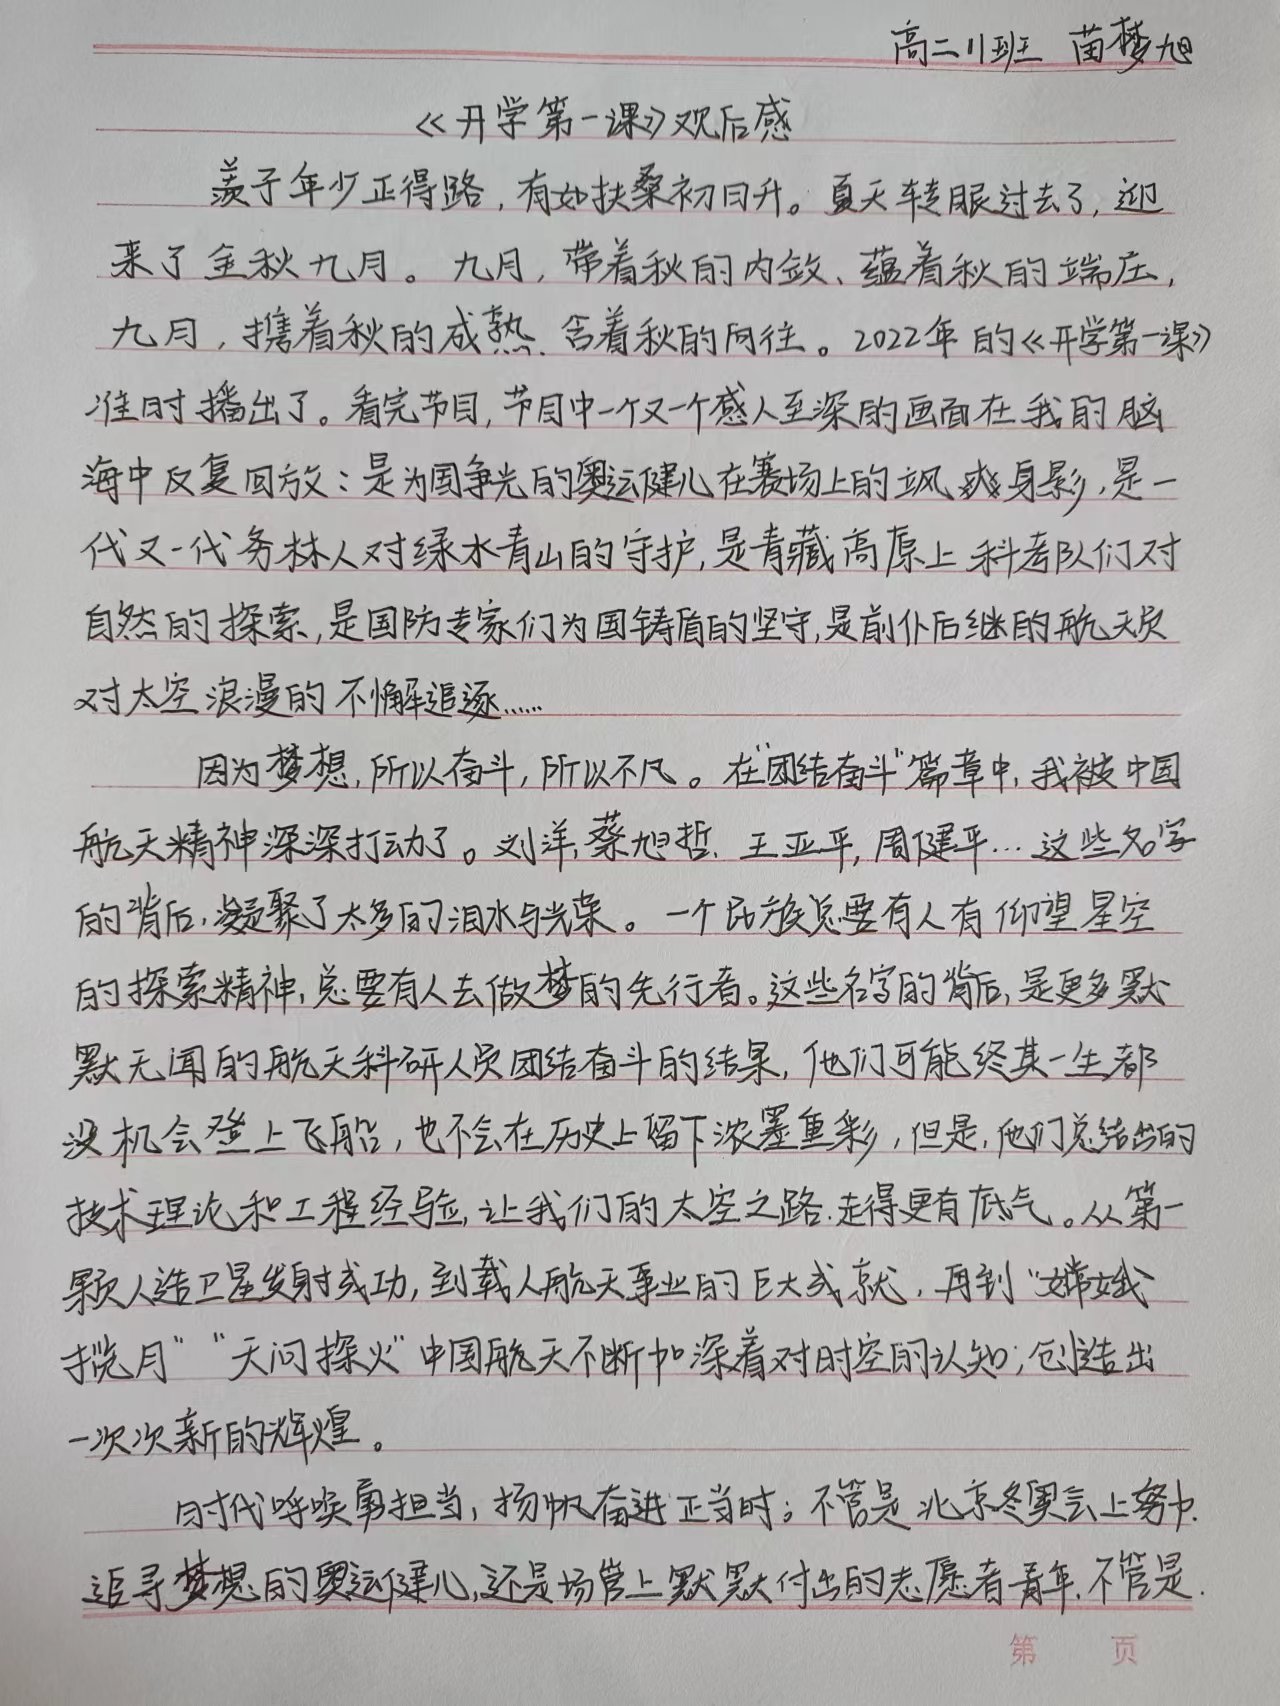 高二11班 苗梦旭
《开学第一课》观后感
羡子年少正得路，有如扶桑初日升。夏天转眼过去了，迎
来了金秋九月。九月，带着秋的内敛、蕴着秋的端庄，
九月，携着秋的成熟、含着秋的向往。2022年的《开学第一课》
准时播出了。看完节目，节目中一个又一个感人至深的画面在我的脑
海中反复回放：是为国争光的奥运健儿在赛场上的飒爽身影，是一
代又一代务林人对绿水青山的守护，是青藏高原上科考队们对
自然的探索，是国防专家们为国铸盾的坚守，是前仆后继的航天员
对太空浪漫的不懈追逐……
因为梦想，所以奋斗，所以不凡。在“团结奋斗”篇章中，我被中国
航天精神深深打动了。刘洋，蔡旭哲、王亚平，周健平…这些名字
的背后，凝聚了太多的泪水与光荣。一个民族总要有人有仰望星空
的探索精神，总要有人去做梦的先行者。这些名字的背后，是更多默
默无闻的航天科研人员团结奋斗的结果，他们可能终其一生都
没机会登上飞船，也不会在历史上留下浓墨重彩，但是，他们总结出的
技术理论和工程经验，让我们的太空之路走得更有底气。从第一
颗人造卫星发射成功，到载人航天事业的巨大成就，再到“嫦娥
揽月”“天问探火”中国航天不断加深着对时空的认知，创造出
一次次新的辉煌。
时代呼唤勇担当，扬帆奋进正当时；不管是北京冬奥会上努力
追寻梦想的奥运健儿，还是场管上默默付出的志愿者青年，不管是
第 页